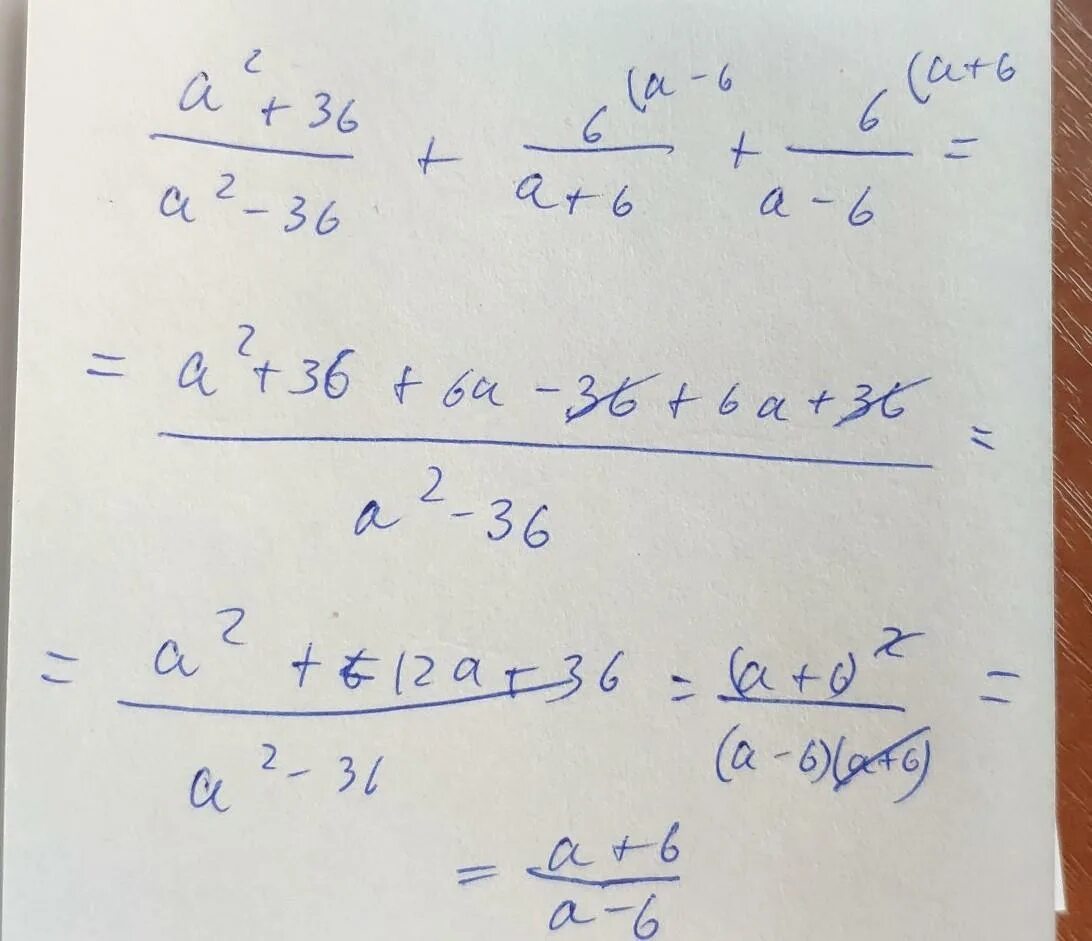 a² + 36 / a² - 36 + 6 (a - 6 / a + 6 + 6 (a + 6 / a - 6 =
= a² + 36 + 6a - 36 + 6a + 36 / a² - 36 =
= a² + 12a + 36 / a² - 36 = (a + 6)² / (a - 6)(a + 6) =
= a + 6 / a - 6